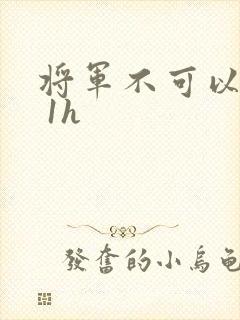 將軍不可以
1h
發奮的小烏龜